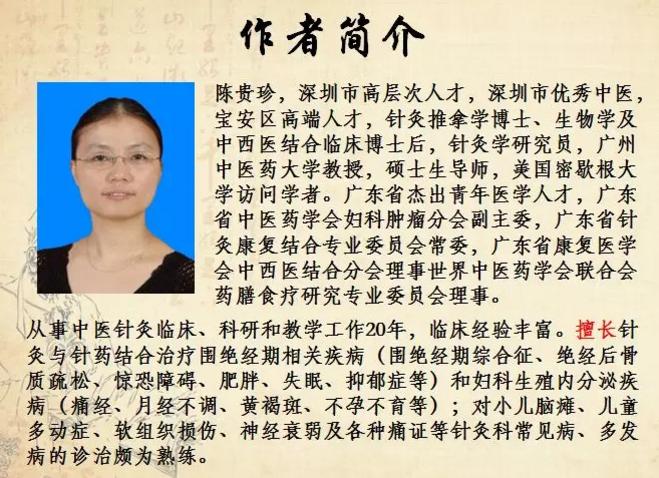 作者简介
陈贵珍，深圳市高层次人才，深圳市优秀中医，
宝安区高端人才，针灸推拿学博士、生物学及
中西医结合临床博士后，针灸学研究员，广州
中医药大学教授，硕士生导师，美国密歇根大
学访问学者。广东省杰出青年医学人才，广东
省中医药学会妇科肿瘤分会副主委，广东省针
灸康复结合专业委员会常委，广东省康复医学
会中西医结合分会理事世界中医药学会联合会
药膳食疗研究专业委员会理事。
从事中医针灸临床、科研和教学工作20年，临床经验丰富。擅长针
灸与针药结合治疗围绝经期相关疾病（围绝经期综合征、绝经后骨
质疏松、惊恐障碍、肥胖、失眠、抑郁症等）和妇科生殖内分泌疾
病（痛经、月经不调、黄褐斑、不孕不育等）；对小儿脑瘫、儿童
多动症、软组织损伤、神经衰弱及各种痛证等针灸科常见病、多发
病的诊治颇为熟练。